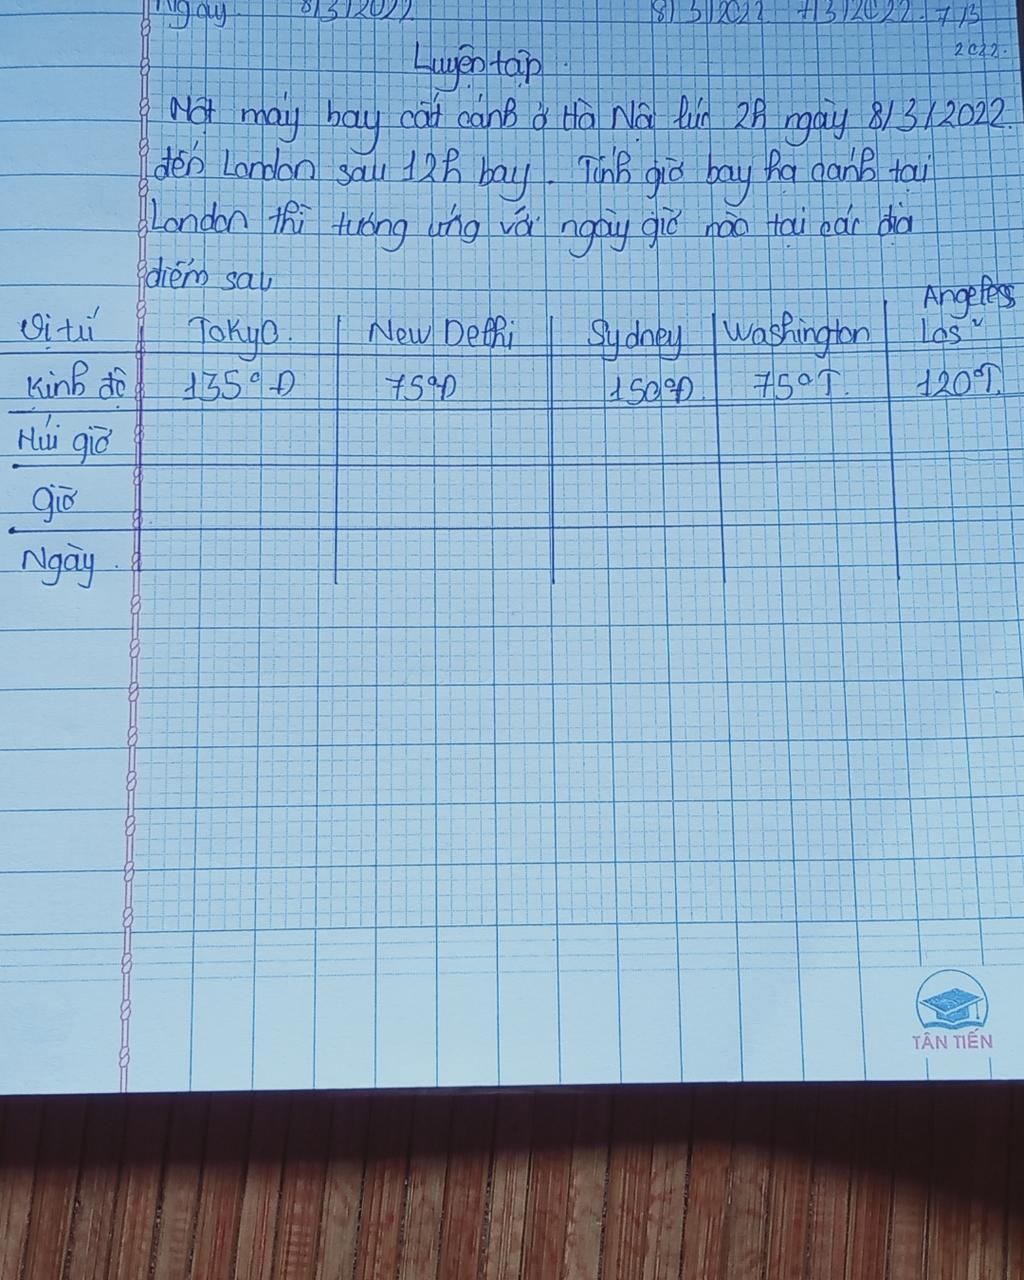 Ngày 8/3/2022 8/3/2022 7/3/2022. 7/3
2022.
Luyện tập.
Một máy bay cất cánh ở Hà Nội lúc 2h ngày 8/3/2022.
đến London sau 12h bay. Tính giờ bay hạ cánh tại
London thì tương ứng với ngày giờ nào tại các địa
điểm sau
Vị trí Tokyo. New Delhi Sydney Washington Los Angeles
Kinh độ 135°Đ 75°Đ 150°Đ 75°T. 120°T.
Múi giờ
Giờ
Ngày.
TÂN TIẾN